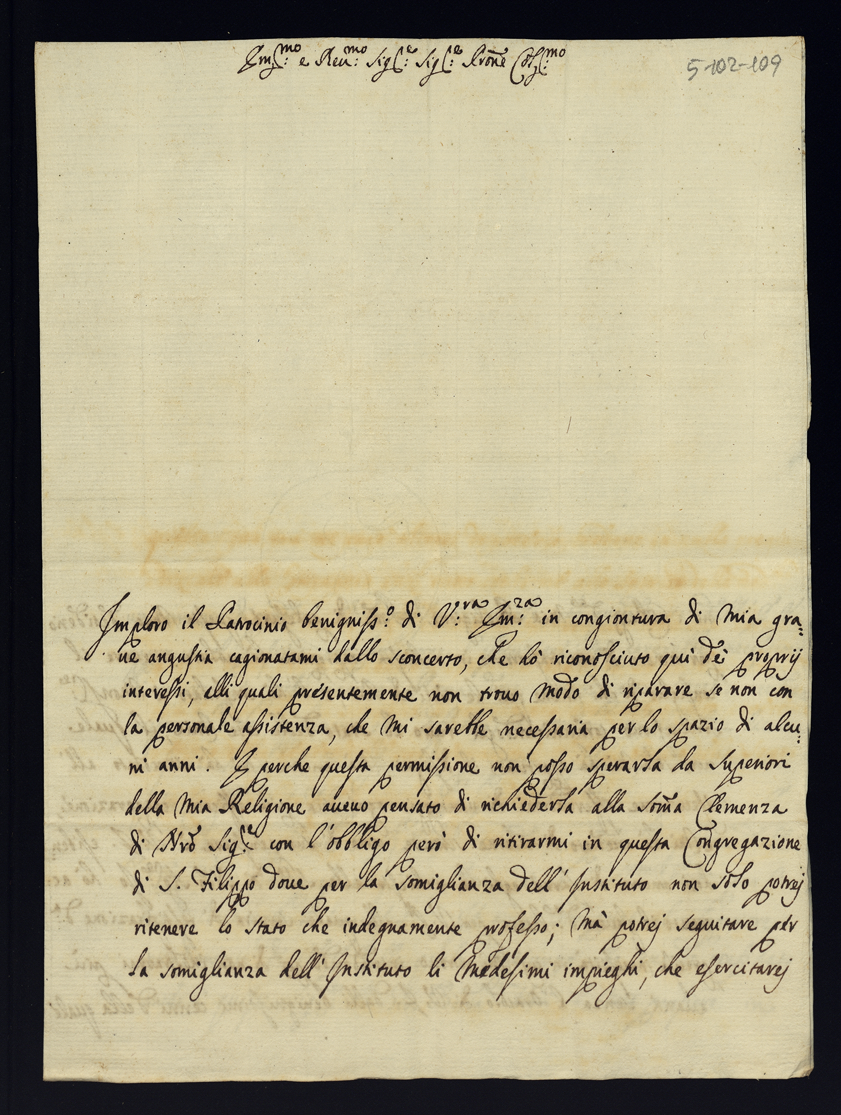 Em:mo e Reu:mo Sig:re Sig:re Prone Col:mo
5-102-109
Imploro il Patrocinio benigniss:o di V:ra Em:za in congiontura di mia gra=
ue angustia cagionatami dallo sconcerto, che hò riconosciuto quì de proprij
interessi, alli quali presentemente non trouo modo di riparare se non con
la personale assistenza, che mi sarebbe necessaria per lo spazio di alcu=
ni anni. E perche questa permissione non posso sperarla da Superiori
della mia Religione aueuo pensato di richiederla alla Soma Clemenza
di Nro Sig:re con l'obbligo però di ritirarmi in questa Congregazione
di S. Filippo doue per la somiglianza dell'Instituto non solo potrej
ritenere lo stato che indegnamente professo; mà potrej seguitare per
la somiglianza dell'Instituto li medesimi impieghi, che esercitarej